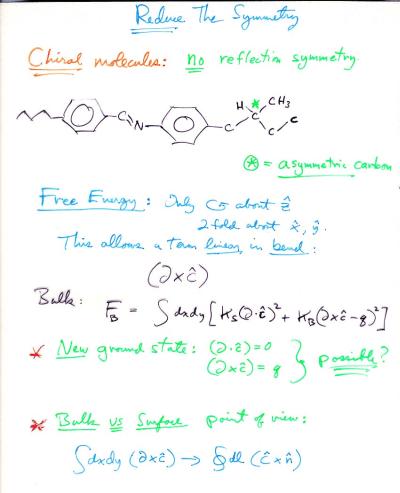 Reduce The Symmetry
Chiral molecules: no reflection symmetry
H * CH3
C=N C C C C
⊛ = asymmetric carbon
Free Energy: Only C5 about ẑ
2 fold about x̂, ŷ.
This allows a term linear in bend:
(∂×ĉ)
Bulk: F_B = ∫dxdy[K_S(∂·ĉ)² + K_B(∂×ĉ-q)²]
* New ground state: (∂·ĉ)=0
(∂×ĉ)=q } possible?
* Bulk vs Surface point of view:
∫dxdy (∂×ĉ) → ∮dl (ĉ×n̂)